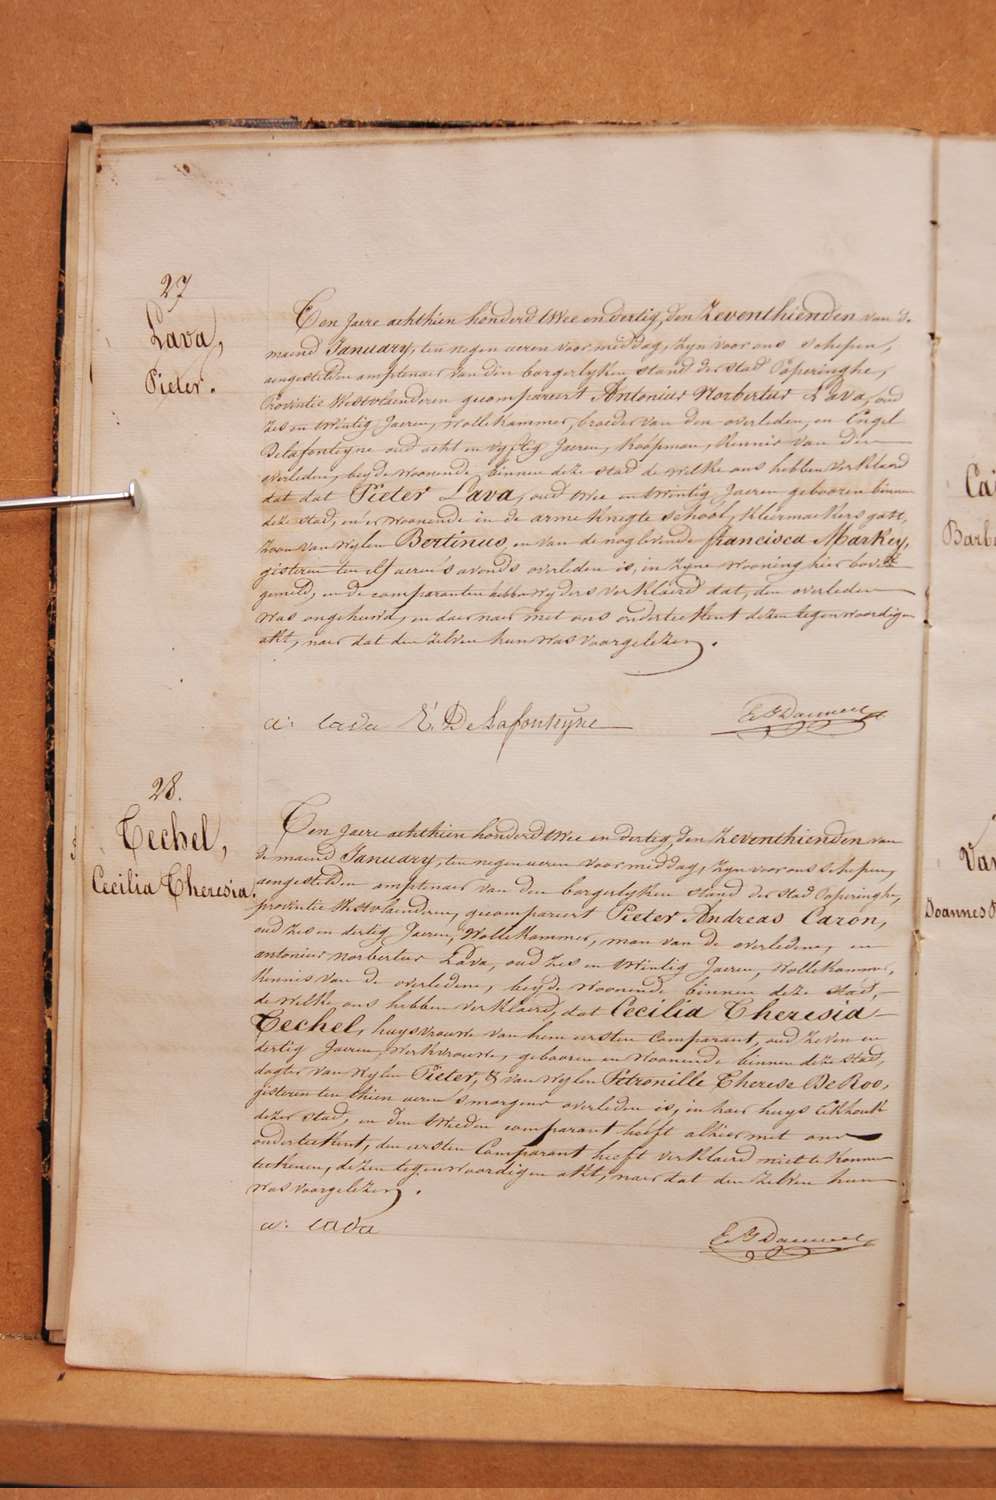 27
Lava,
Pieter.
Ten Jaere achthien honderd twee en dertig, den Zeventhienden van de
maend January, ten negen ueren voormiddag, zyn voor ons schepen,
aengestelden amptenaer van den borgerlyken stand der stad Poperinghe,
Provintie Westvlaenderen gecompareert Antonius Norbertus Lava, oud
zes en twintig Jaeren, wollekammer, broeder van den overleden, en Engel
Delafonteyne oud acht en vyftig Jaeren, koopman, kennis van den
overleden, beyde woonende binnen deze stad de welke ons hebben verklaerd
dat dat Pieter Lava, oud twee en twintig Jaeren gebooren binnen
deze stad, en er woonende in de arme knegte school, kleermaekers gast,
zoon van wylen Bertinus, en van de nog levende francisca Markey,
gisteren ten elf ueren s avonds overleden is, in zyne wooning hier boven
gemeld, en de comparanten hebben wyders verklaerd dat, den overleden
was ongehuwd, en daer naer met ons onderteekent dezen tegenwoordigen
akt, naer dat den zelven hun was voorgelezen.
a: lava E: De Lafonteyne
28.
Techel,
Cecilia Theresia.
Ten Jaere achthien honderd twee en dertig, den zeventhienden van
de maend January, ten negen ueren voormiddag, zyn voor ons schepen,
aengestelden amptenaer van den borgerlyken stand der stad Poperinghe,
provintie Westvlaenderen, gecompareert Pieter Andreas Caron,
oud zes en dertig Jaeren, wollekammer, man van de overledene, en
antonius norbertus Lava, oud zes en twintig Jaeren, wollekammer,
kennis van de overledene, beyde woonende binnen deze stad,
de welke ons hebben verklaerd, dat Cecilia Theresia
Techel, huysvrouwe van hem eersten Comparant, oud zeven en
dertig Jaeren, werkvrouwe, gebooren en woonende binnen deze stad,
dogter van wylen Pieter, & van wylen Petronille Therese De Roo,
gisteren ten thien ueren s'morgens overleden is, in haer huys Eekhoutt
dezer stad, en den tweeden comparant heeft alhier met ons
onderteekent, den eersten Comparant heeft verklaerd niet te konnen
teekenen, dezen tegenwoordigen akt, naer dat den zelven hun
was voorgelezen.
a: lava
Cai
Barb
Van
Joannes